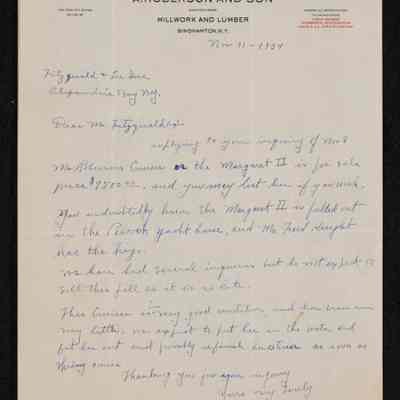 A. ROBERSON AND SON
MILLWORK AND LUMBER
BINGHAMTON, N.Y.
Nov 11 - 1934
Fitzgerald & Lee Inc
Alexandria Bay N.Y.
Dear Mr Fitzgerald
replying to your inquiry of Nov 8
Mr Cruiser or the Margaret II is for sale
price $7500.00, and you may list her if you wish.
You undoubtedly know the Margaret II is pulled out
in the yacht house, and Mr Fred
has the keys.
We have had several inquiries but do not expect to
sell this fall as it is so late.
This Cruiser is in very good condition, and has been run
very little, we expect to put her in the water and
put her out and possibly refinish interior as soon as
Spring comes
Thanking you for your inquiry
Yours very truly